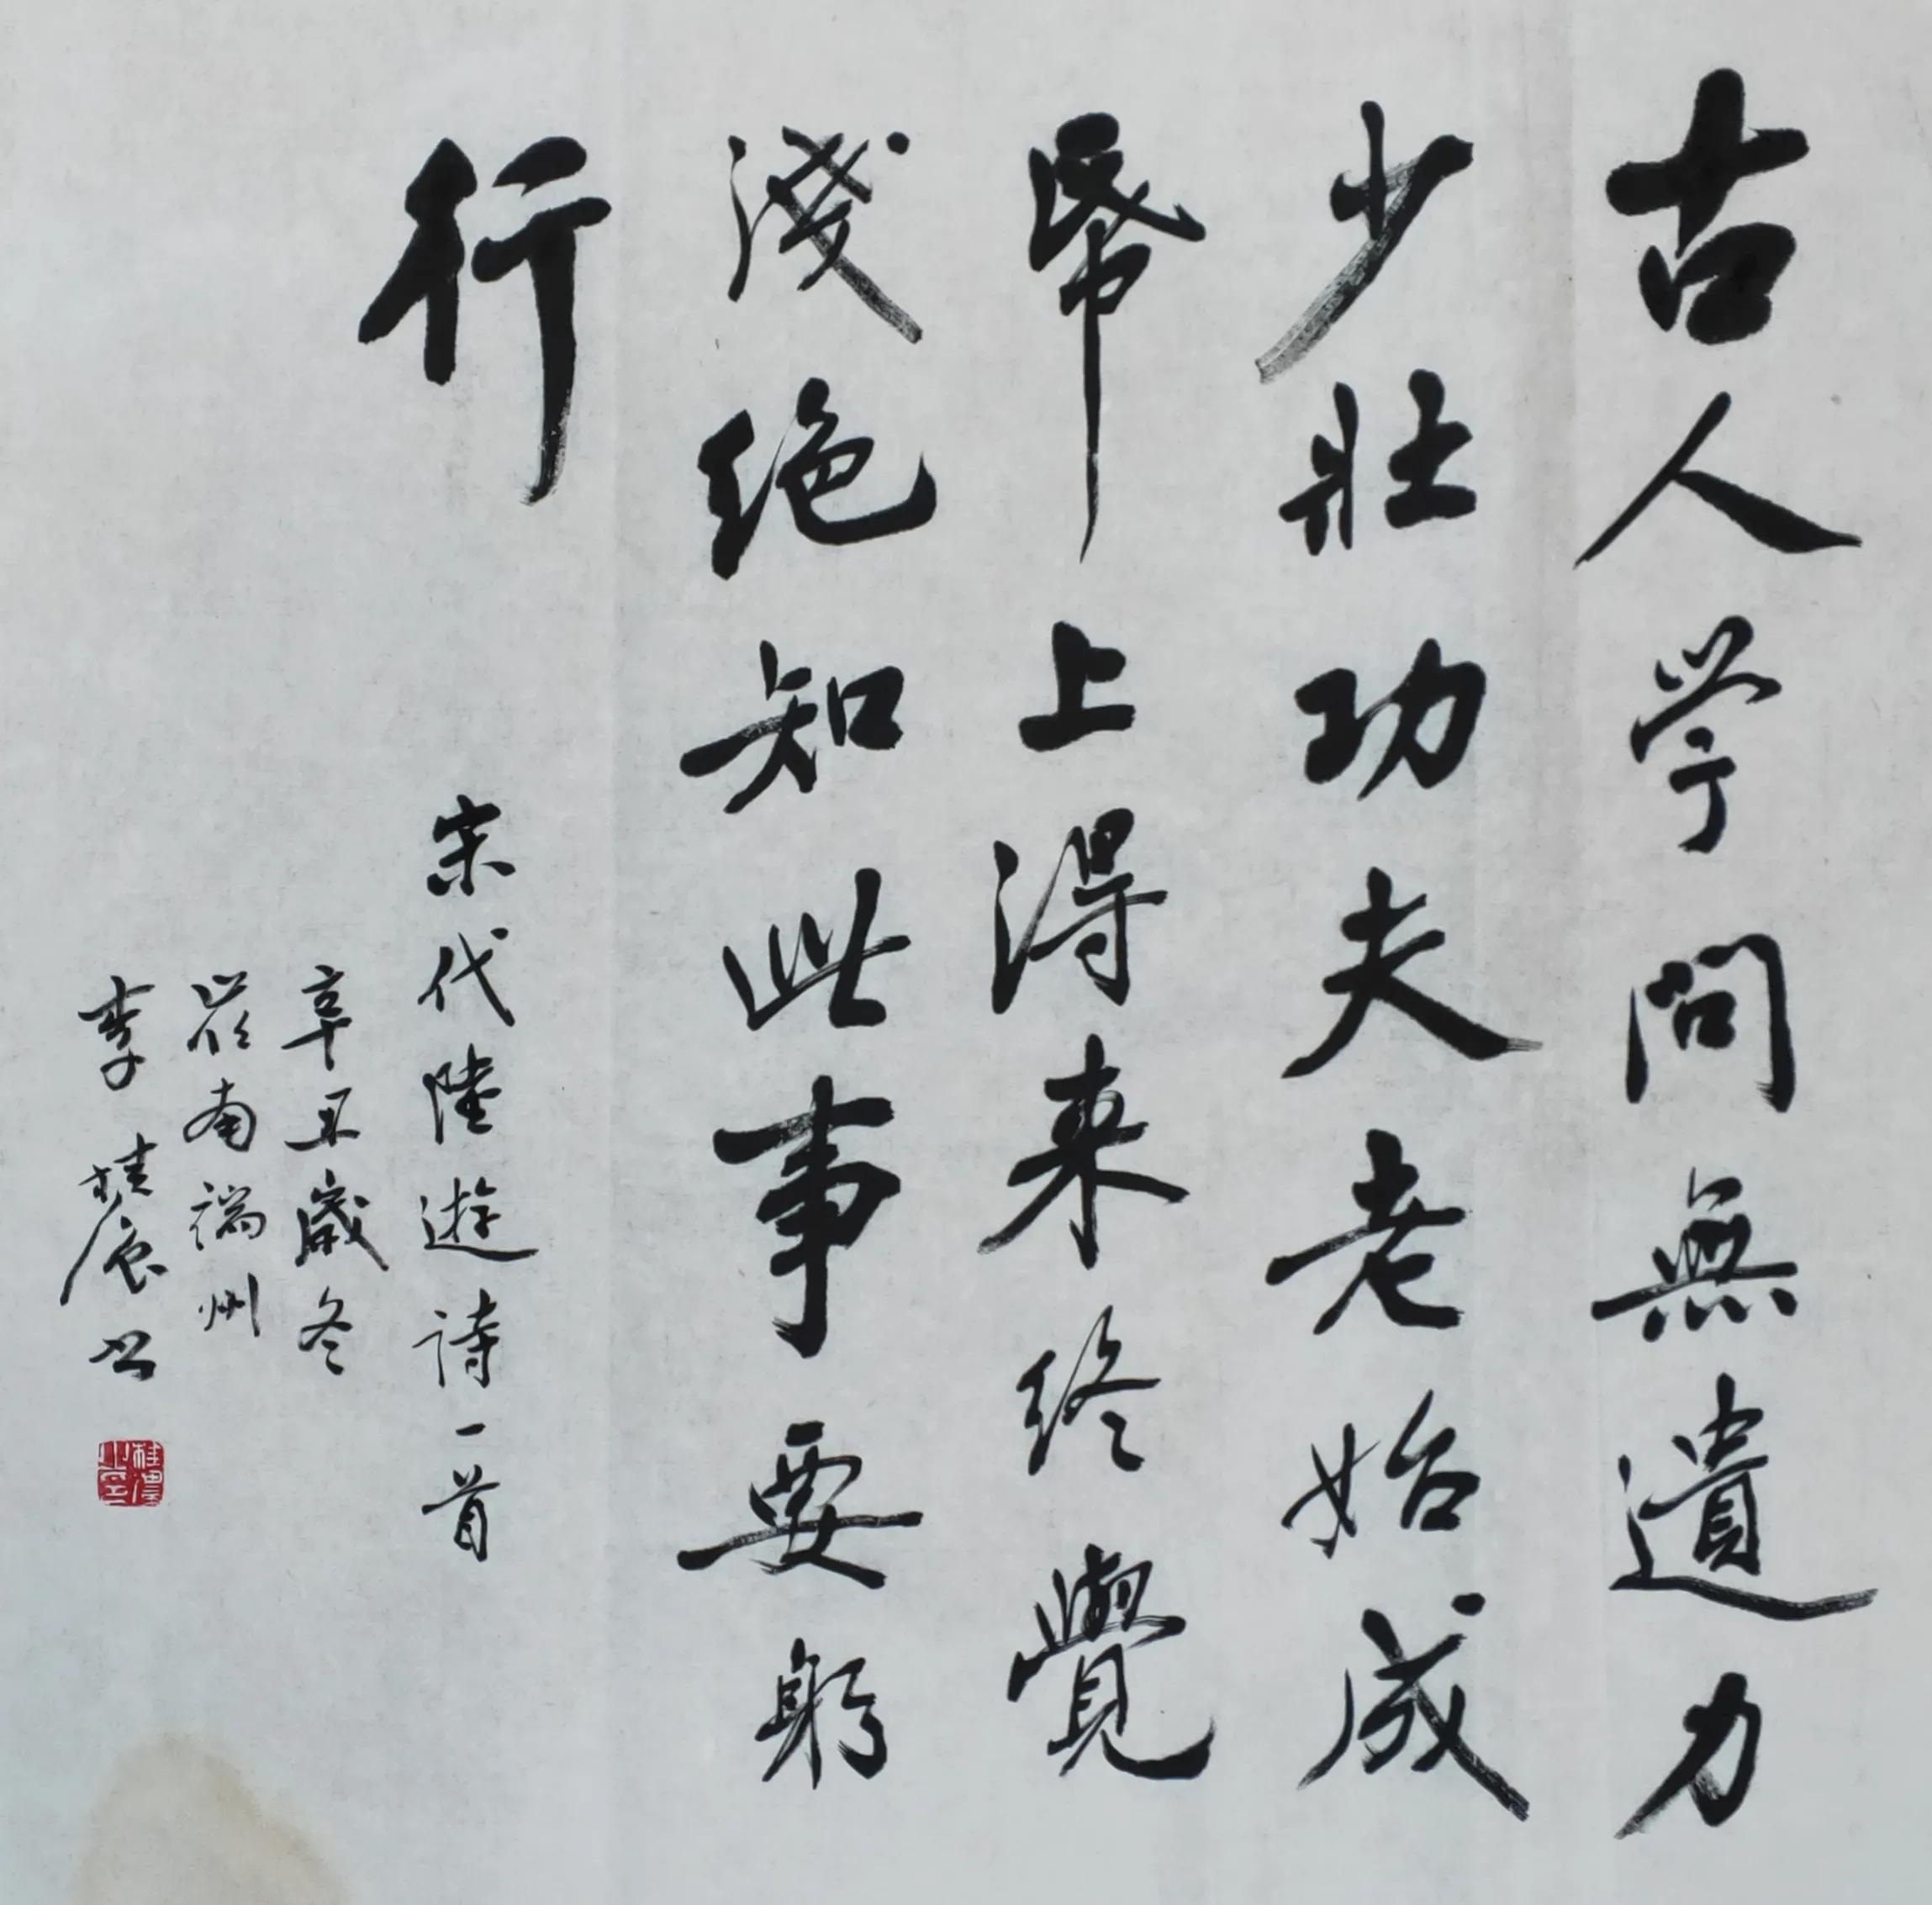 古人学問無遺力
少壯功夫老始成
帋上得来終覺
淺絶知此事要躬
行
宋代陸遊詩一首
辛丑歲冬
岭南端州
李桂书